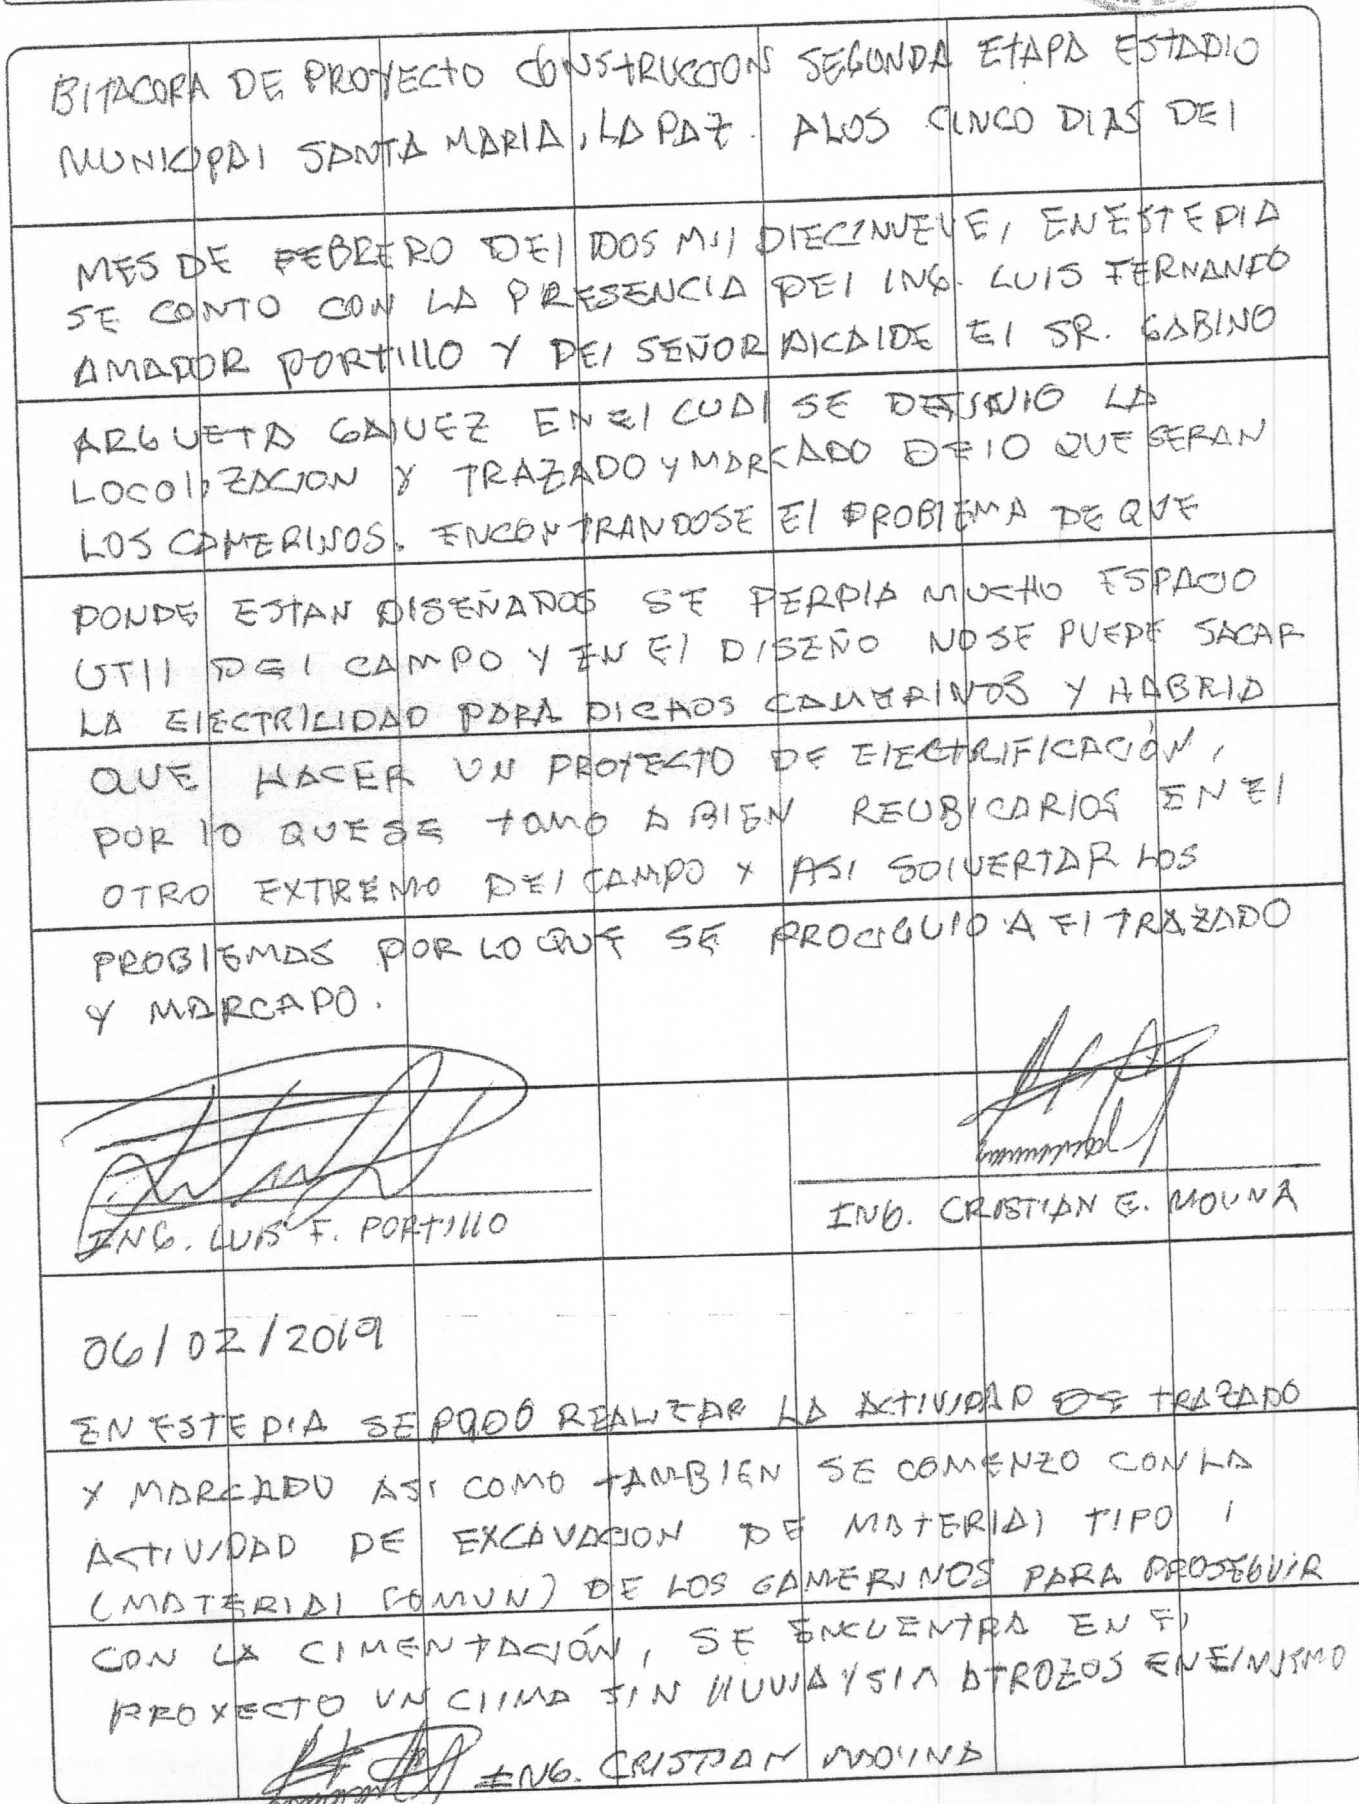 BITACORA DE PROYECTO CONSTRUCCION SEGUNDA ETAPA ESTADIO
MUNICIPAL SANTA MARIA, LA PAZ. A LOS CINCO DIAS DEL
MES DE FEBRERO DEL DOS MIL DIECINUEVE, EN ESTE DIA
SE CONTO CON LA PRESENCIA DEL ING. LUIS FERNANDO
AMADOR PORTILLO Y DEL SEÑOR ALCALDE EL SR. GABINO
ARGUETA GALVEZ EN EL CUAL SE DEFINIO LA
LOCOLIZACION Y TRAZADO Y MARCADO DE LO QUE SERAN
LOS CAMERINOS. ENCONTRANDOSE EL PROBLEMA DE QUE
DONDE ESTAN DISEÑADOS SE PERDIA MUCHO ESPACIO
UTIL DEL CAMPO Y EN EL DISEÑO NO SE PUEDE SACAR
LA ELECTRICIDAD PARA DICHOS CAMERINOS Y HABRIA
QUE HACER UN PROYECTO DE ELECTRIFICACIÓN,
POR LO QUE SE TOMO A BIEN REUBICARLOS EN EL
OTRO EXTREMO DEL CAMPO Y ASI SOLVERTAR LOS
PROBLEMAS POR LO QUE SE PROCIGUIO A EL TRAZADO
Y MARCADO.
ING. LUIS F. PORTILLO
ING. CRISTIAN E. MOLINA
06/02/2019
EN ESTE DIA SE PUDO REALIZAR LA ACTIVIDAD DE TRAZADO
Y MARCADO ASI COMO TAMBIEN SE COMENZO CON LA
ACTIVIDAD DE EXCAVACION DE MATERIAL TIPO I
(MATERIAL COMUN) DE LOS CAMERINOS PARA PROSEGUIR
CON LA CIMENTACIÓN, SE ENCUENTRA EN EL
PROYECTO UN CLIMA SIN LLUVIA Y SIN ATROZOS EN EL MISMO
ING. CRISTIAN MOLINA